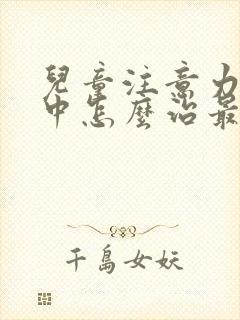 兒童注意力
中怎麼治最
千島女妖